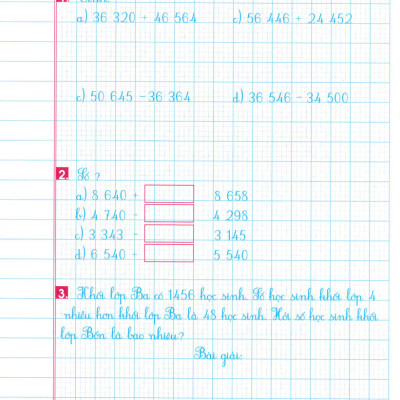 a) 36 320 + 46 564 c) 56 446 + 24 452
c) 50 645 - 36 364 d) 36 546 - 34 500
2. Số ?
a) 8 640 + 8 658
b) 4 740 - 4 298
c) 3 343 - 3 145
d) 6 540 - 5 540
3. Khối lớp Ba có 1456 học sinh. Số học sinh khối lớp 4
nhiều hơn khối lớp Ba là 48 học sinh. Hỏi số học sinh khối
lớp Bốn là bao nhiêu?
Bài giải: